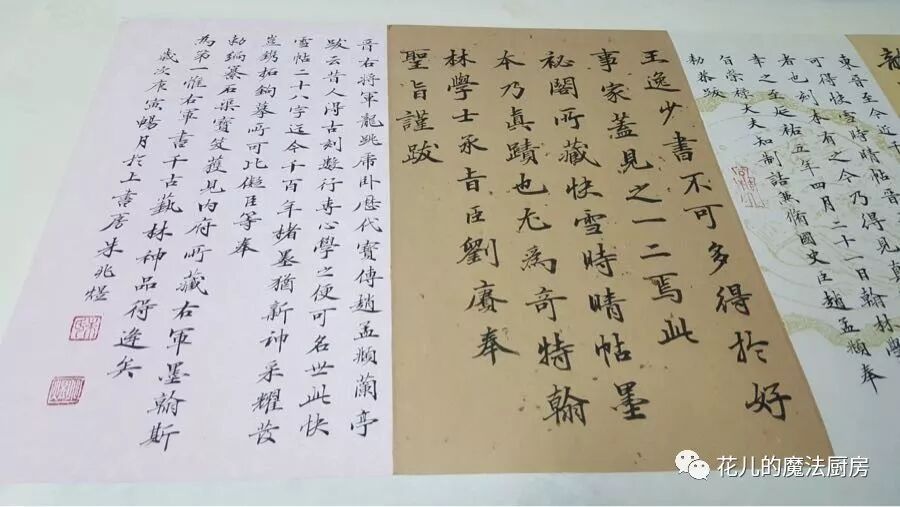 龍
東晉至今近千
可得快雪時晴帖晉
者也刻本有之今乃得見真
幸之至延祐五年四月二十一日翰林學
旨榮祿大夫知制誥兼脩國史臣趙孟頫奉
勑恭跋
王逸少書不可多得於好
事家蓋見之一二焉此
祕閣所藏快雪時晴帖墨
本乃真蹟也尤為奇特翰
林學士承旨臣劉賡奉
聖旨謹跋
晉右將軍龍跳虎臥歷代寶傳趙孟頫蘭亭
跋云昔人得古刻數行專心學之便可名世此快
雪帖二十八字迄今千百年楮墨猶新神采耀發
豈鐫拓鉤摹所可比儗臣等奉
勅編纂石渠寶笈獲見內府所藏右軍墨翰斯
為第一惟右軍書千古藝林神品得逢矣
歲次庚寅暢月於上書房朱兆熤
花儿的魔法厨房